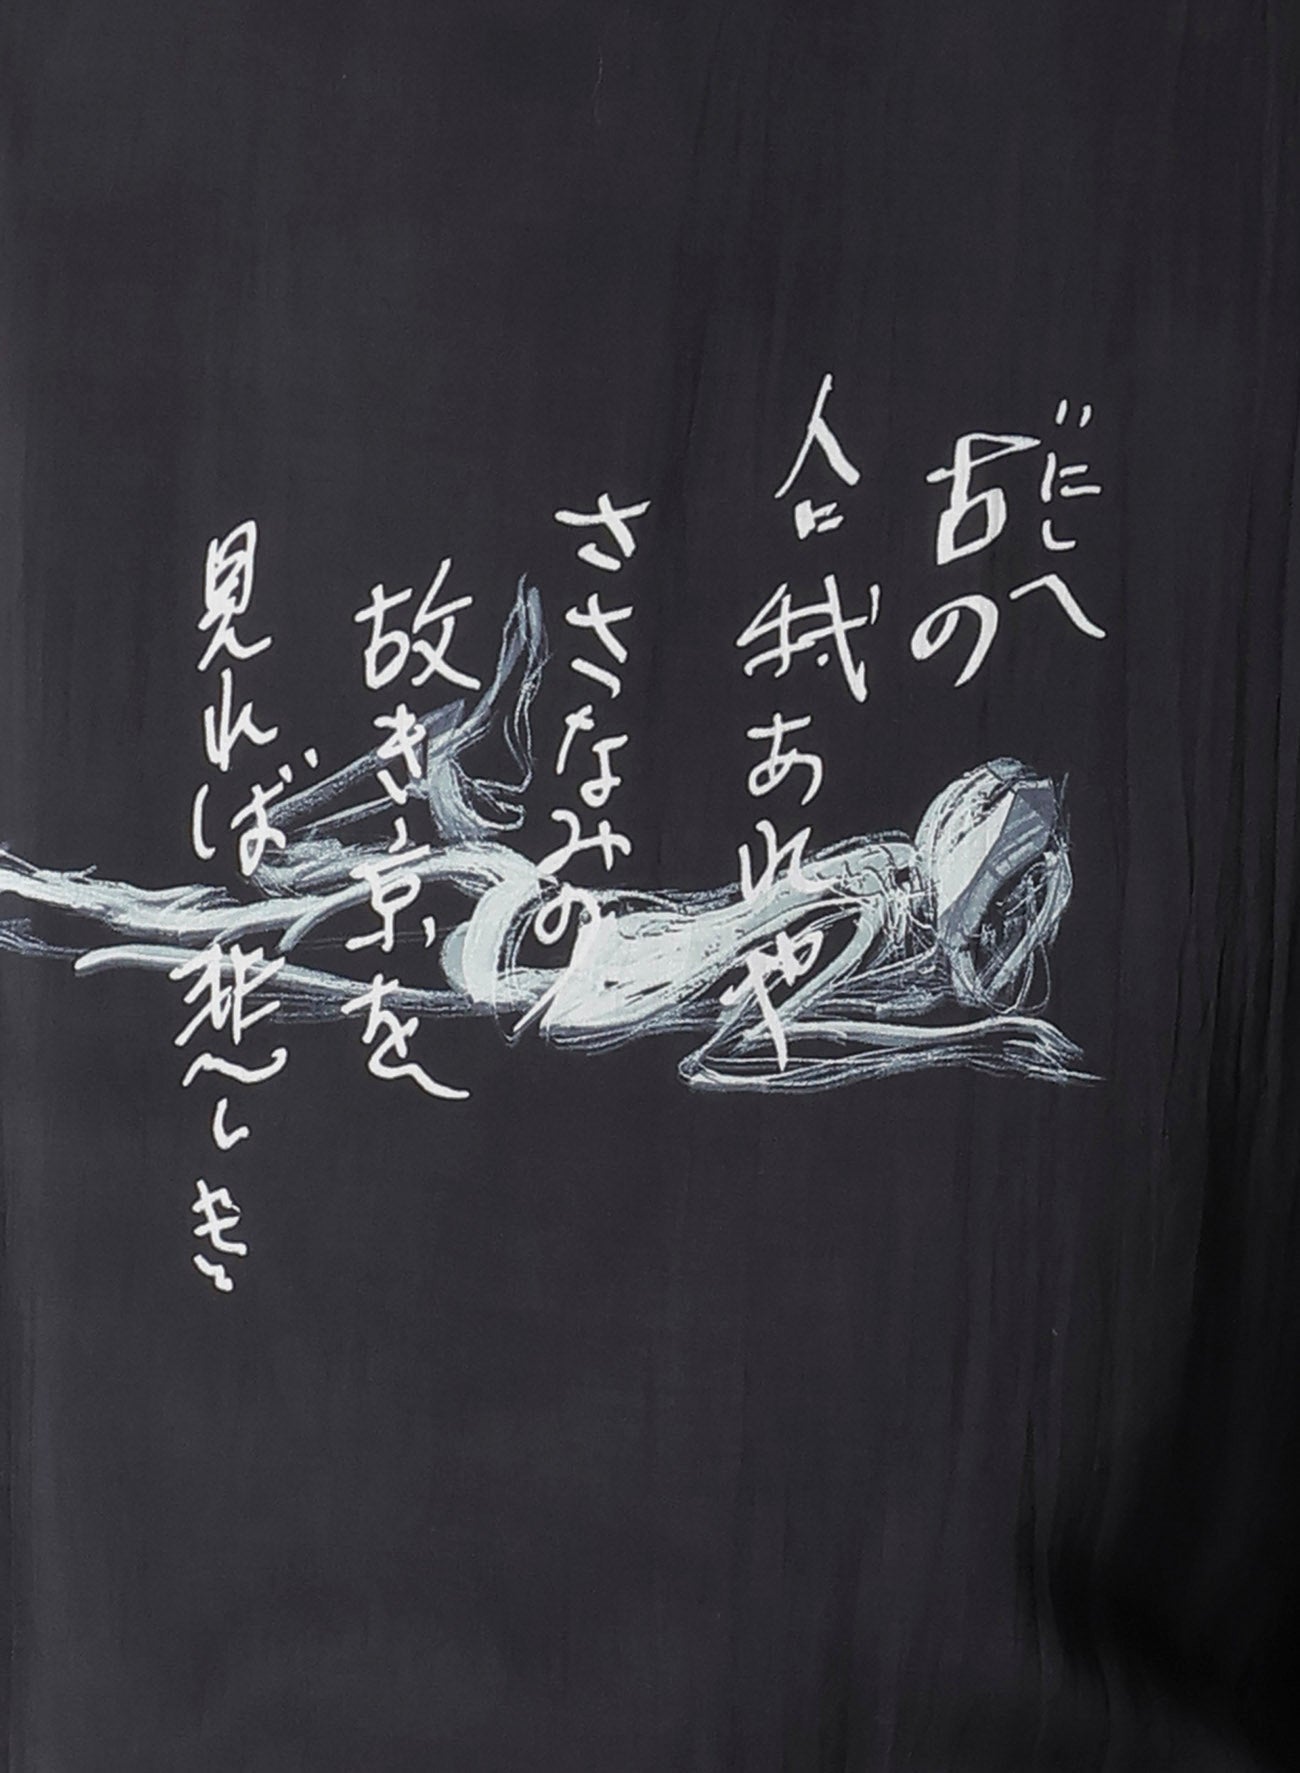 いにしへ
古の
人に我あれや
ささなみの
故き京を
見れば悲しき